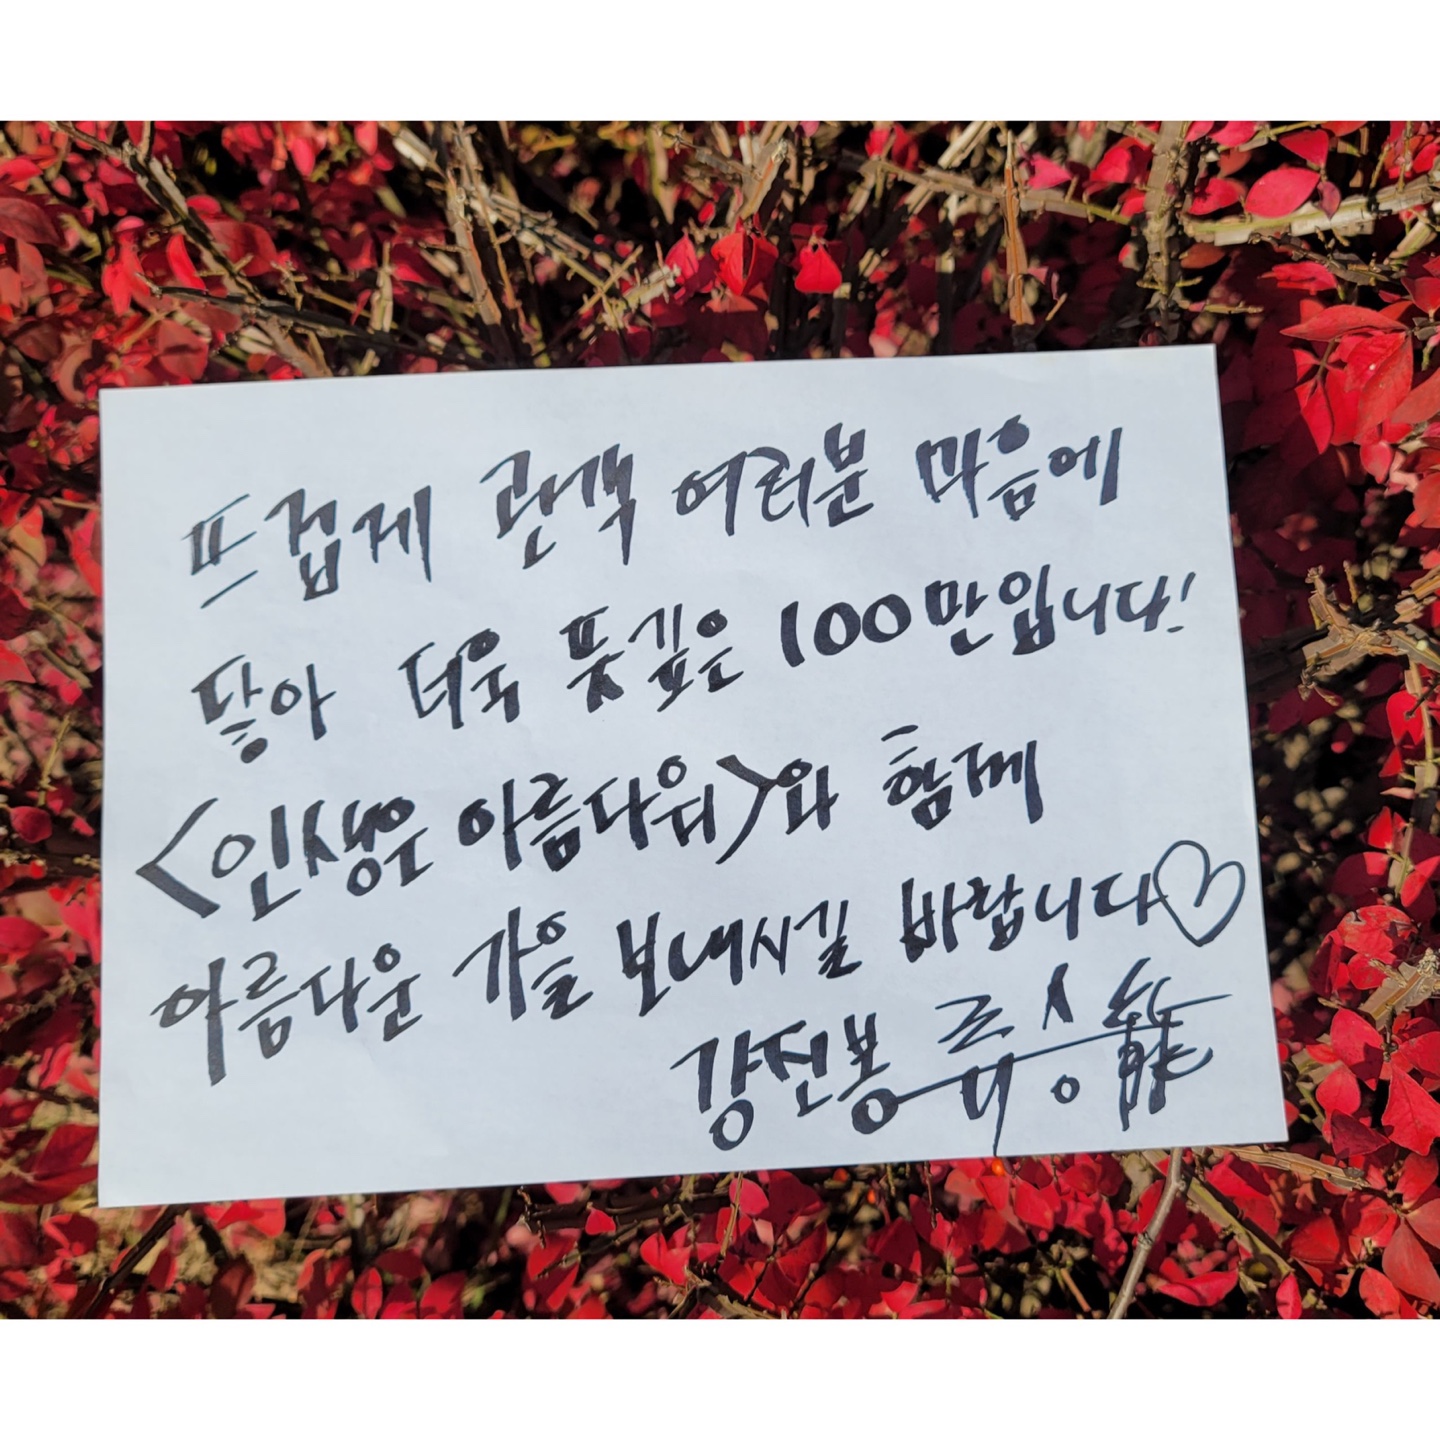 뜨겁게 관객 여러분 마음에
닿아 더욱 뜻깊은 100만입니다!
<인생은 아름다워>와 함께
아름다운 가을 보내시길 바랍니다♡
강진봉 류승